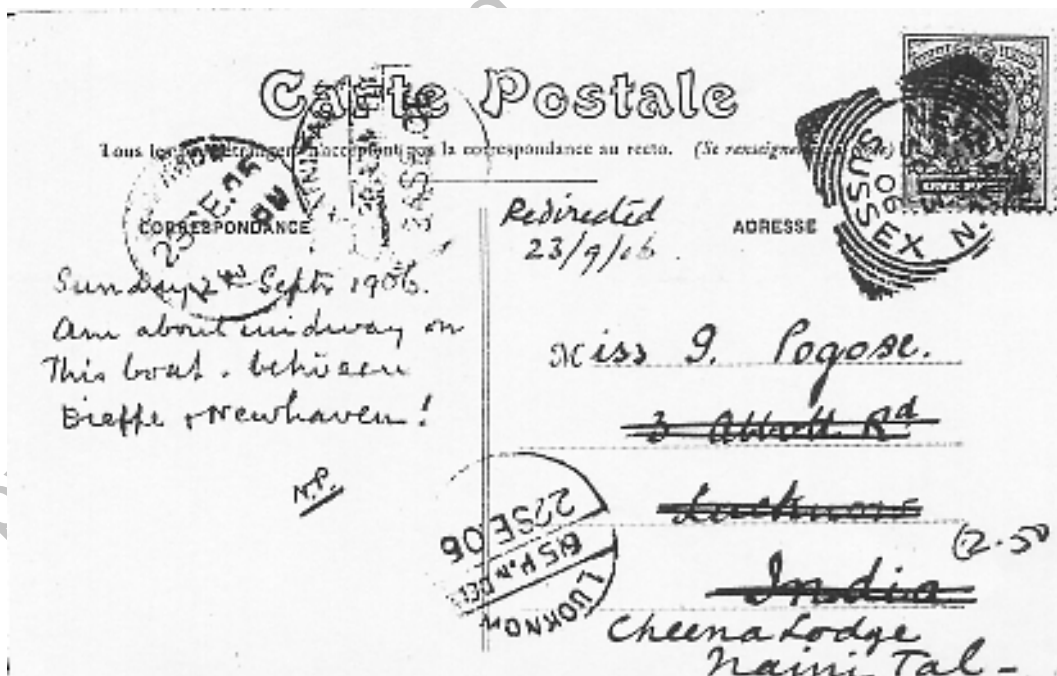 Carte Postale
Tous les étrangers n'acceptent pas la correspondance au recto. (Se renseigner
CORRESPONDANCE
ADRESSE
SUSSEX N.
06
23 SE.06
Redirected
23/9/06
Sunday 2nd Septr 1906.
Am about midway on
This boat. between
Dieppe & Newhaven!
N.P.
Miss I. Pogose.
3 Abbott Rd
Lucknow
India
Cheena Lodge
Naini Tal -
(2.50
LUCKNOW
22 SE 06